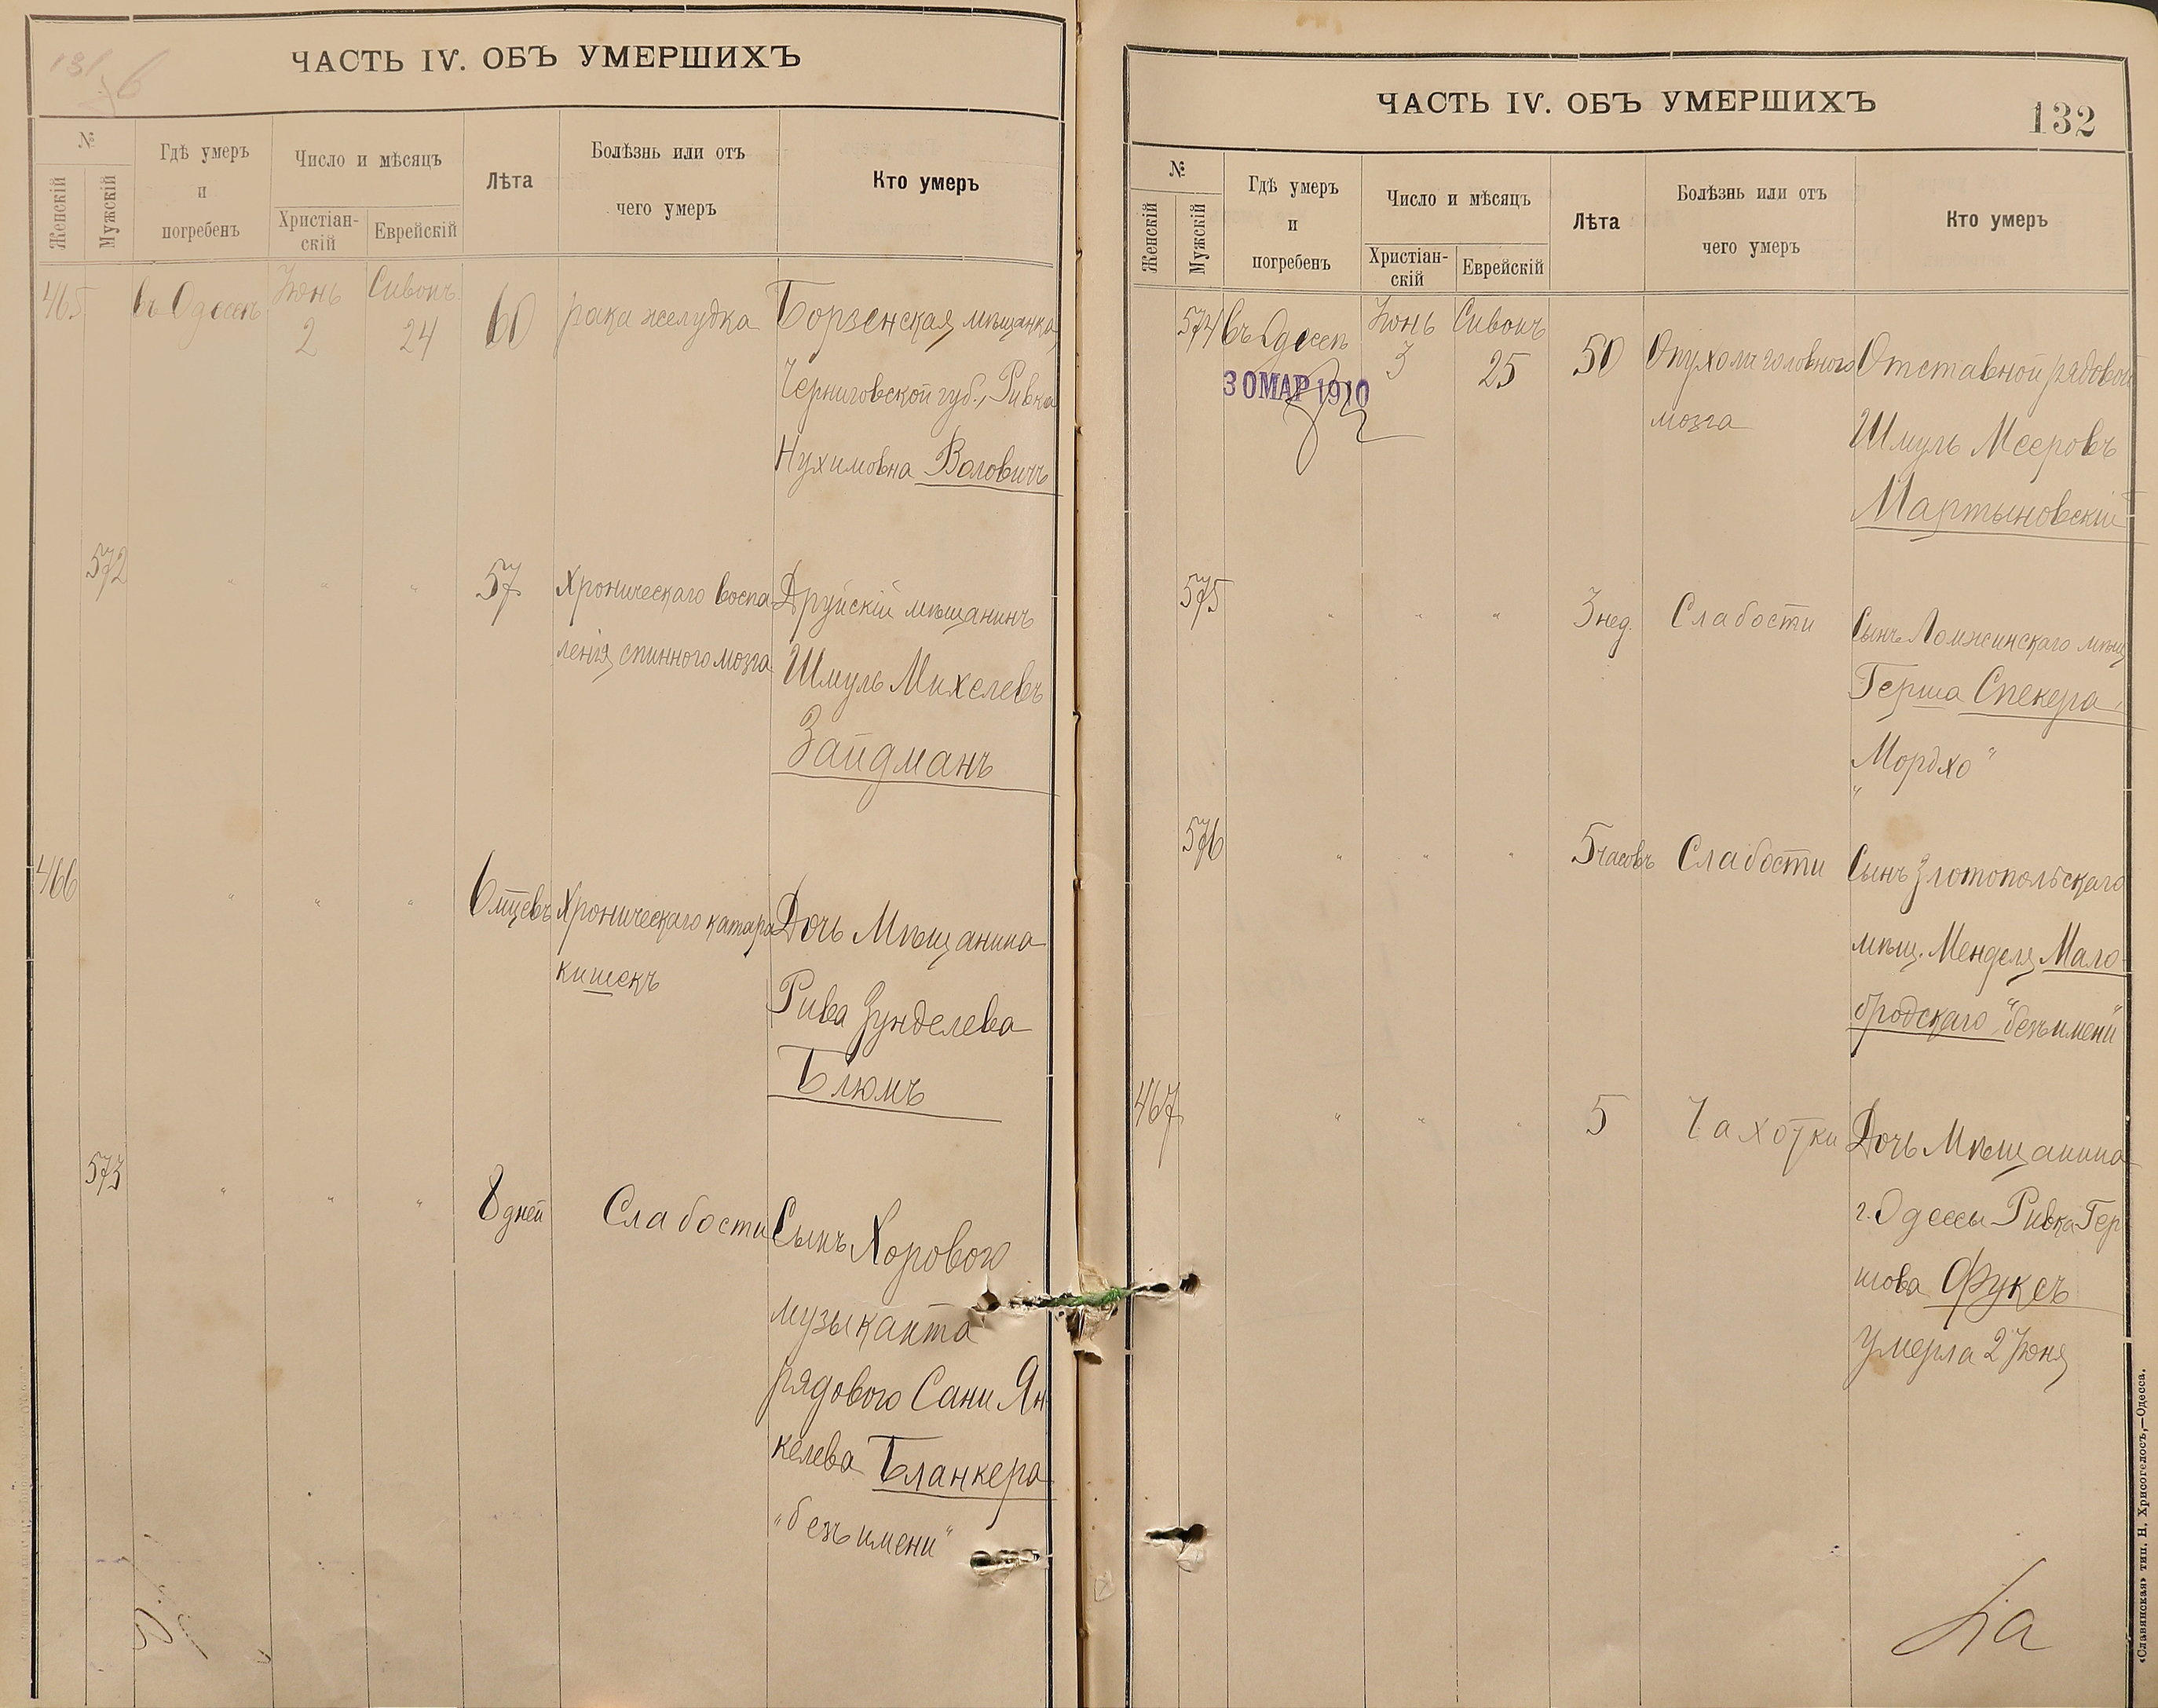 ЧАСТЬ IV. ОБЪ УМЕРШИХЪ
№
Женскій
Мужскій
Гдѣ умеръ
и
погребенъ
Число и мѣсяцъ
Христіан-
скій
Еврейскій
Лѣта
Болѣзнь или отъ
чего умеръ
Кто умеръ
465 въ Одессѣ Іюнь 2 Сивонъ 24 60 рака желудка Борзенская мѣщанка
Черниговской губ., Ривка
Нухимовна Воловичъ
572 " " " 57 Хроническаго воспа- Друйскій мѣщанинъ
ленія спинного мозга Шмуль Михелевъ
Зайдманъ
466 " " " 6 мцевъ Хроническаго катара Дочь Мѣщанина
кишекъ Рива Зунделева
Блюмъ
573 " " " 8 дней Слабости Сынъ Хорового
музыканта
рядового Сани Ян-
келева Бланкера
"безъ имени"
ЧАСТЬ IV. ОБЪ УМЕРШИХЪ
132
№
Женскій
Мужскій
Гдѣ умеръ
и
погребенъ
Число и мѣсяцъ
Христіан-
скій
Еврейскій
Лѣта
Болѣзнь или отъ
чего умеръ
Кто умеръ
574 въ Одессѣ Іюнь 3 Сивонъ 25 50 Опухоли головного Отставной рядовой
30 МАР 1910
мозга Шмуль Мееровъ
Мартыновскій
575 " " " 3 нед. Слабости Сынъ Ломжинскаго мѣщ.
Герша Спекера,
"Мордхо"
576 " " " 5 часовъ Слабости Сынъ Златопольскаго
мѣщ. Менделя Мало-
бродскаго "безъ имени"
467 " " " 5 Чахотки Дочь Мѣщанина
г. Одессы Ривка Гер
шова Фуксъ
умерла 2 Іюня
«Славянская» тип. Н. Хрисогелосъ,—Одесса.